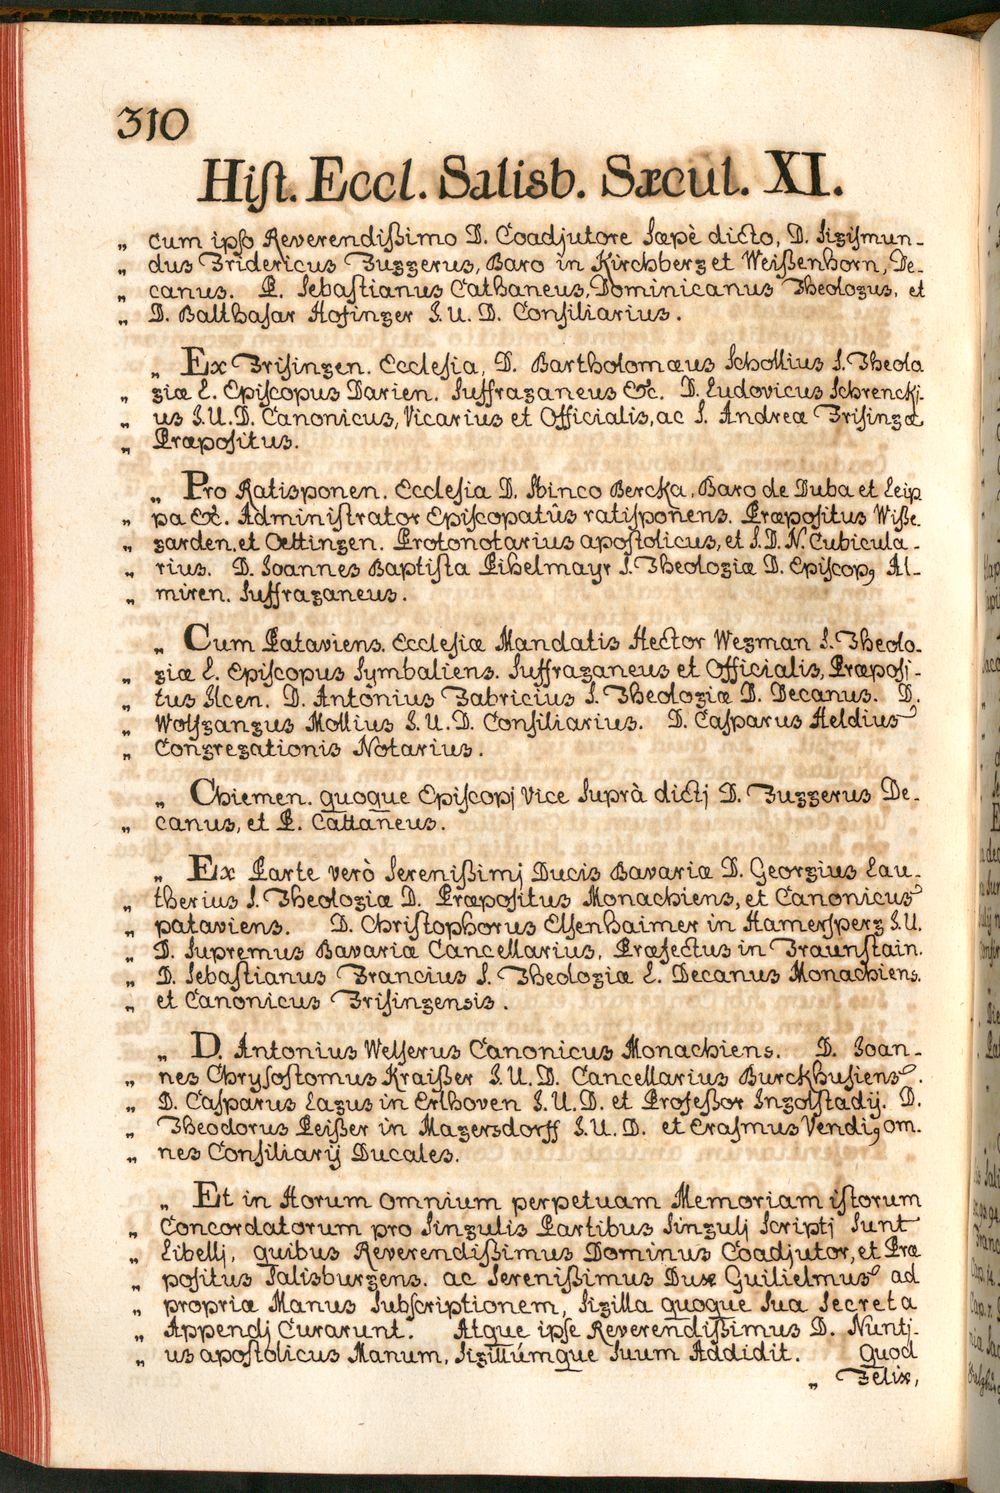 310
Hiſt. Eccl. Salisb. Sæcul. XI.
„ cum ipſo Reverendißimo D. Coadjutore Sæpè dicto, D. Sigiſmun-
„ dus Fridericus Fuggerus, Baro in Kirchberg et Weißenhorn, De-
„ canus. P. Sebaſtianus Cathaneus, Dominicanus Theologus, et
„ D. Balthaſar Hofinger J. U. D. Conſiliarius.
„ Ex Friſingen. Ecclesia, D. Bartholomæus Schollius S. Theolo
„ giæ L. Epiſcopus Darien. Suffraganeus &c. D. Ludovicus Schrenckj-
„ us J.U.D. Canonicus, Vicarius et Officialis, ac S. Andreæ Friſingæ
„ Præpoſitus.
„ Pro Ratisponen. Eccleſia D. Sbinco Bercka, Baro de Duba et Leip
„ pa &c. Adminiſtrator Epiſcopatûs ratiſponens. Præpoſitus Wiße.
„ garden. et Oettingen. Protonotarius apoſtolicus, et S. D. N. Cubicula-
„ rius. D. Joannes Baptiſta Pihelmayr S. Theologiæ D. Epiſcopꝫ Al-
„ miren. Suffraganeus.
„ Cum Pataviens. Eccleſiæ Mandatis Hector Wegman S. Theolo-
„ giæ L. Epiſcopus Symbaliens. Suffraganeus et Officialis, Præpoſj-
„ tus Ilcen. D. Antonius Fabricius S. Theologiæ D. Decanus. D.
„ Wolfgangus Mollius J. U. D. Conſiliarius. D. Caſparus Heldius
„ Congregationis Notarius.
„ Chiemen. quoque Epiſcopj Vice Suprà dictj D. Fuggerus De-
„ canus, et P. Cattaneus.
„ Ex Parte verò Sereniſſimj Ducis Bavariæ D. Georgius Lau-
„ therius S. Theologiæ D. Præpoſitus Monachiens, et Canonicus
„ pataviens. D. Chriſtophorus Elſenhaimer in Hamerſperg J.U.
„ D. Supremus Bavariæ Cancellarius, Præfectus in Traunſtain.
„ D. Sebaſtianus Francius S. Theologiæ L. Decanus Monachiens.
„ et Canonicus Friſingensis.
„ D. Antonius Welſerus Canonicus Monachiens. D. Joan-
„ nes Chryſoſtomus Kraißer J. U. D. Cancellarius Burckhuſiens.
„ D. Caſparus Lagus in Erlhoven J. U. D. et Profeßor Ingolſtadij. D.
„ Theodorus Peißer in Magersdorff J. U. D. et Eraſmus Vendi, om-
„ nes Conſiliarij Ducales.
„ Et in Horum omnium perpetuam Memoriam iſtorum
„ Concordatorum pro Singulis Partibus Singulj Scriptj Sunt
„ Libellj, quibus Reverendißimus Dominus Coadjutor, et Præ
„ poſitus Salisburgens. ac Serenißimus Dux Guilielmus ad
„ propriæ Manus Subſcriptionem, Sigilla quoque Sua Secreta
„ Appendj Curarunt. Atque ipſe Reverendißimus D. Nuntj-
„ us apoſtolicus Manum, Sigillúmque Suum Addidit. Quod
„ Felix,